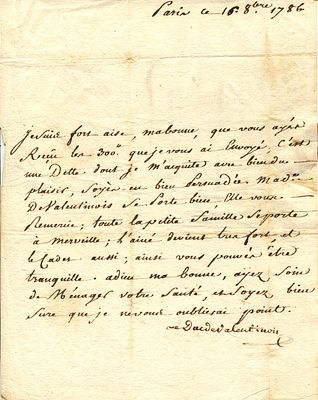 Paris ce 16. 8.bre 1786
Je suis fort aise, ma bonne, que vous ayés
Recüe les 300.# que je vous ai Envoyé, C'est
une Dette, dont je m'acquite avec bien du
plaisir, Soyés en bien persuadée. Mad.e
De Valentinois se Porte bien, Elle vous
Remercie; toute la petite famille se porte
à merveille; l'ainé devient tres fort, et
le Cadet aussi; ainsi vous pouvés être
tranquille. adieu ma bonne, ayez Soin
de Ménager votre Santé, et Soyez bien
Sure que je ne vous oublierai point.
Duc de Valentinois